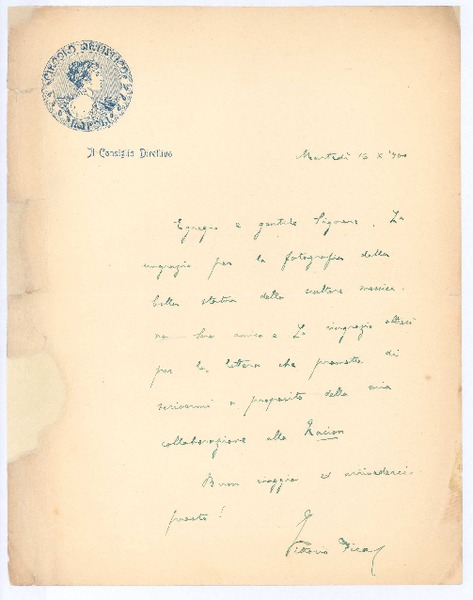 CIRCOLO ARTISTICO
NAPOLI
Il Consiglio Direttivo
Martedì 13 X '900
Egregio e gentile Signore, La
ringrazio per la fotografia della
bella statua dello scultore messica-
no Suo amico e La ringrazio altresì
per la lettera che promette di
scrivermi a proposito della mia
collaborazione alla Nacion
Buon viaggio ed arrivederci
presto!
Vittorio Pica